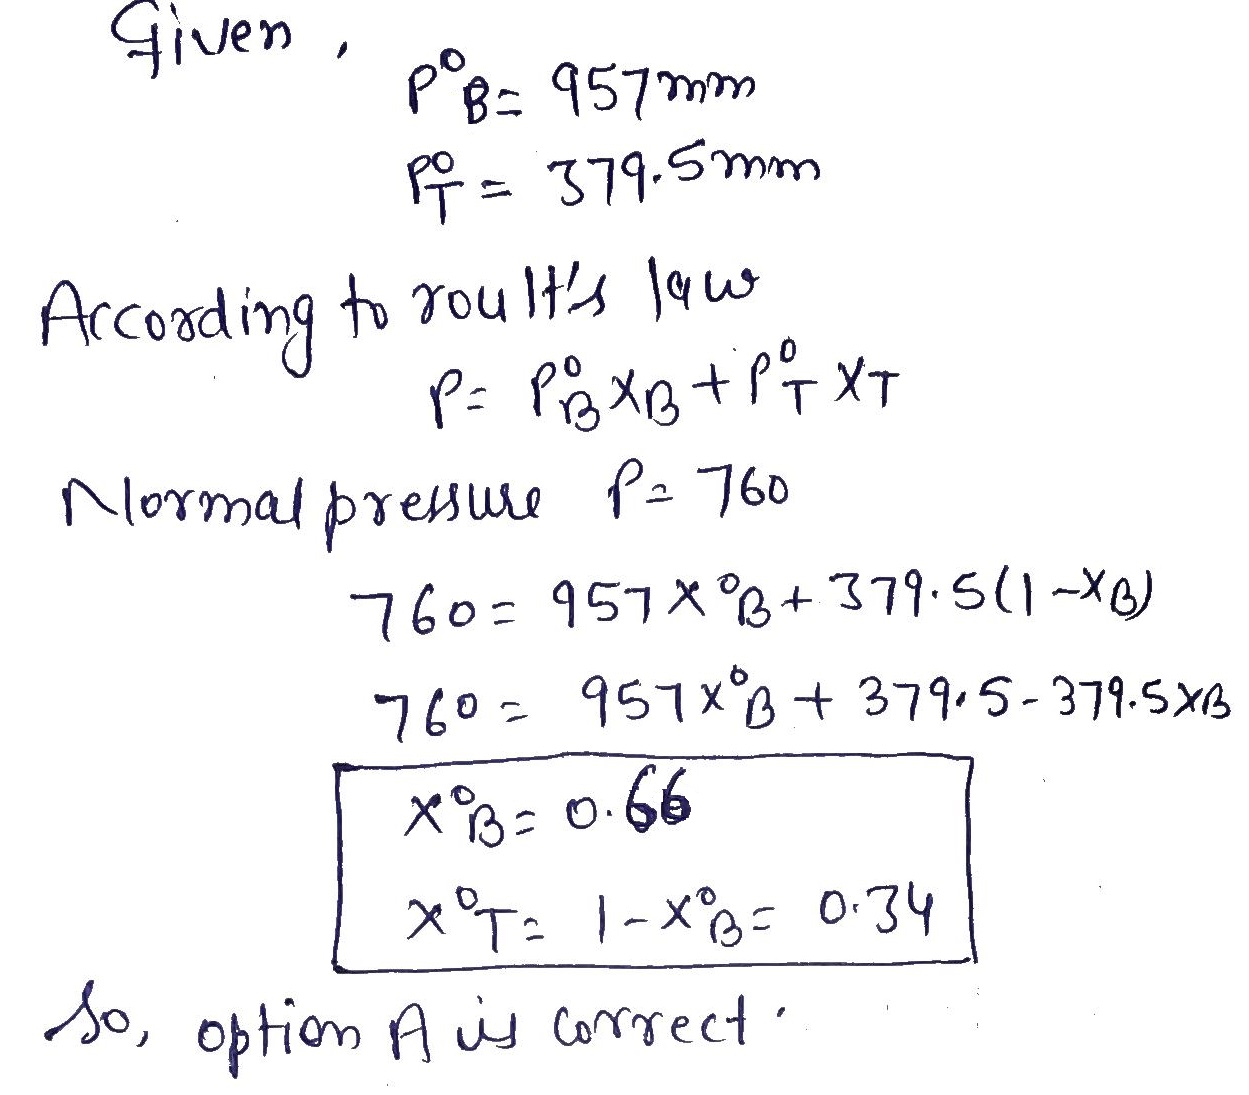 Given,
P°B = 957mm
P°T = 379.5mm
According to roult's law
P = P°B XB + P°T XT
Normal pressure P = 760
760 = 957 X°B + 379.5(1-XB)
760 = 957 X°B + 379.5 - 379.5 XB
X°B = 0.66
X°T = 1 - X°B = 0.34
So, option A is correct.